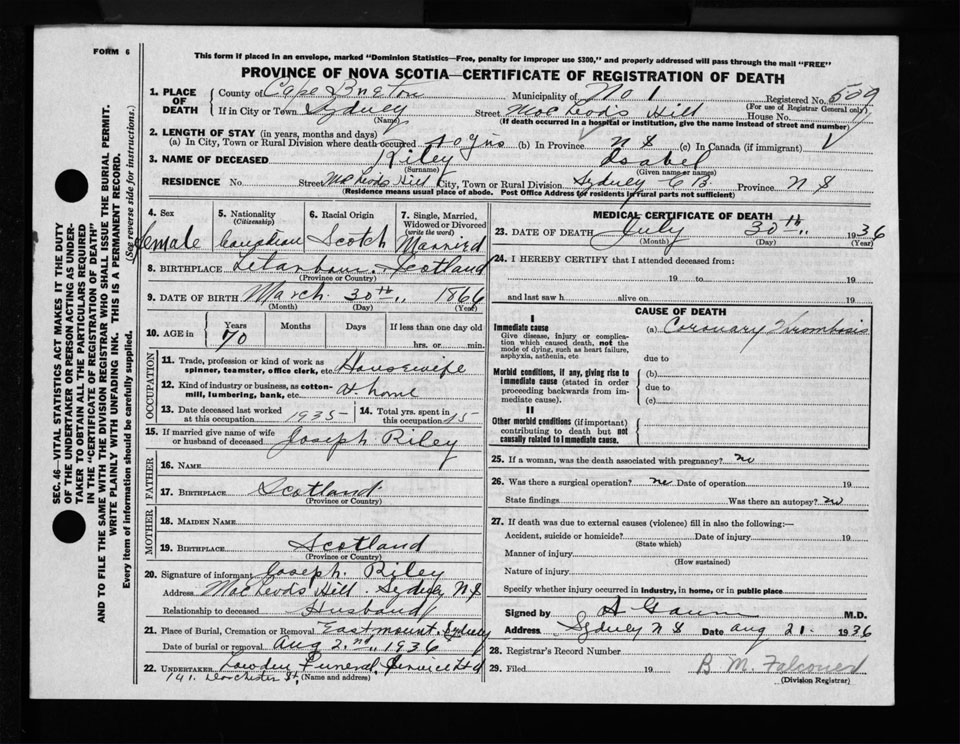 FORM 6
This form if placed in an envelope, marked "Dominion Statistics—Free, penalty for improper use $300," and properly addressed will pass through the mail "FREE"
PROVINCE OF NOVA SCOTIA—CERTIFICATE OF REGISTRATION OF DEATH
SEC. 46—VITAL STATISTICS ACT MAKES IT THE DUTY
OF THE UNDERTAKER OR PERSON ACTING AS UNDER-
TAKER TO OBTAIN ALL THE PARTICULARS REQUIRED
IN THE "CERTIFICATE OF REGISTRATION OF DEATH"
AND TO FILE THE SAME WITH THE DIVISION REGISTRAR WHO SHALL ISSUE THE BURIAL PERMIT.
WRITE PLAINLY WITH UNFADING INK. THIS IS A PERMANENT RECORD.
Every item of information should be carefully supplied. (See reverse side for instructions.)
1. PLACE OF DEATH County of Cape Breton Municipality of No 1 Registered No. 509
(For use of Registrar General only)
If in City or Town Sydney Street MacLeods Hill House No.
(Name) (If death occurred in a hospital or institution, give the name instead of street and number)
2. LENGTH OF STAY (in years, months and days)
(a) In City, Town or Rural Division where death occurred 40 yrs (b) In Province N S (c) In Canada (if immigrant)
3. NAME OF DECEASED Riley Isabel
(Surname) (Given name or names)
RESIDENCE No. Street McLeods Hill City, Town or Rural Division Sydney C B Province N S
(Residence means usual place of abode. Post Office Address for residents in rural parts not sufficient)
4. Sex female
5. Nationality (Citizenship) Canadian
6. Racial Origin Scotch
7. Single, Married, Widowed or Divorced (write the word) Married
8. BIRTHPLACE Scotland
(Province or Country)
9. DATE OF BIRTH March 30th 1866
(Month) (Day) (Year)
10. AGE in Years 70 Months Days If less than one day old
hrs. or min.
OCCUPATION
11. Trade, profession or kind of work as spinner, teamster, office clerk, etc. Housewife
12. Kind of industry or business, as cotton-mill, lumbering, bank, etc. at home
13. Date deceased last worked at this occupation 1935 14. Total yrs. spent in this occupation 15
15. If married give name of wife or husband of deceased Joseph Riley
FATHER
16. NAME
17. BIRTHPLACE Scotland
(Province or Country)
MOTHER
18. MAIDEN NAME
19. BIRTHPLACE Scotland
(Province or Country)
20. Signature of informant Joseph Riley
Address MacLeods Hill Sydney N S
Relationship to deceased Husband
21. Place of Burial, Cremation or Removal Eastmount, Sydney
Date of burial or removal Aug 2nd 1936
22. UNDERTAKER Lowden Funeral Service Ltd
141 Dorchester St. (Name and address)
MEDICAL CERTIFICATE OF DEATH
23. DATE OF DEATH July 30th 1936
(Month) (Day) (Year)
24. I HEREBY CERTIFY that I attended deceased from:
19 to 19
and last saw h alive on 19
CAUSE OF DEATH
I
Immediate cause
Give disease, injury or complication which caused death, not the mode of dying, such as heart failure, asphyxia, asthenia, etc
(a) Coronary Thrombosis
due to
Morbid conditions, if any, giving rise to immediate cause (stated in order proceeding backwards from immediate cause).
(b)
due to
(c)
II
Other morbid conditions (if important) contributing to death but not causally related to immediate cause.
25. If a woman, was the death associated with pregnancy? no
26. Was there a surgical operation? no Date of operation 19
State findings Was there an autopsy? no
27. If death was due to external causes (violence) fill in also the following:—
Accident, suicide or homicide? Date of injury 19
(State which)
Manner of injury
(How sustained)
Nature of injury
Specify whether injury occurred in industry, in home, or in public place
Signed by A Gaum M.D.
Address Sydney N S Date Aug 21 1936
28. Registrar's Record Number
29. Filed 19 B M Falconer
(Division Registrar)